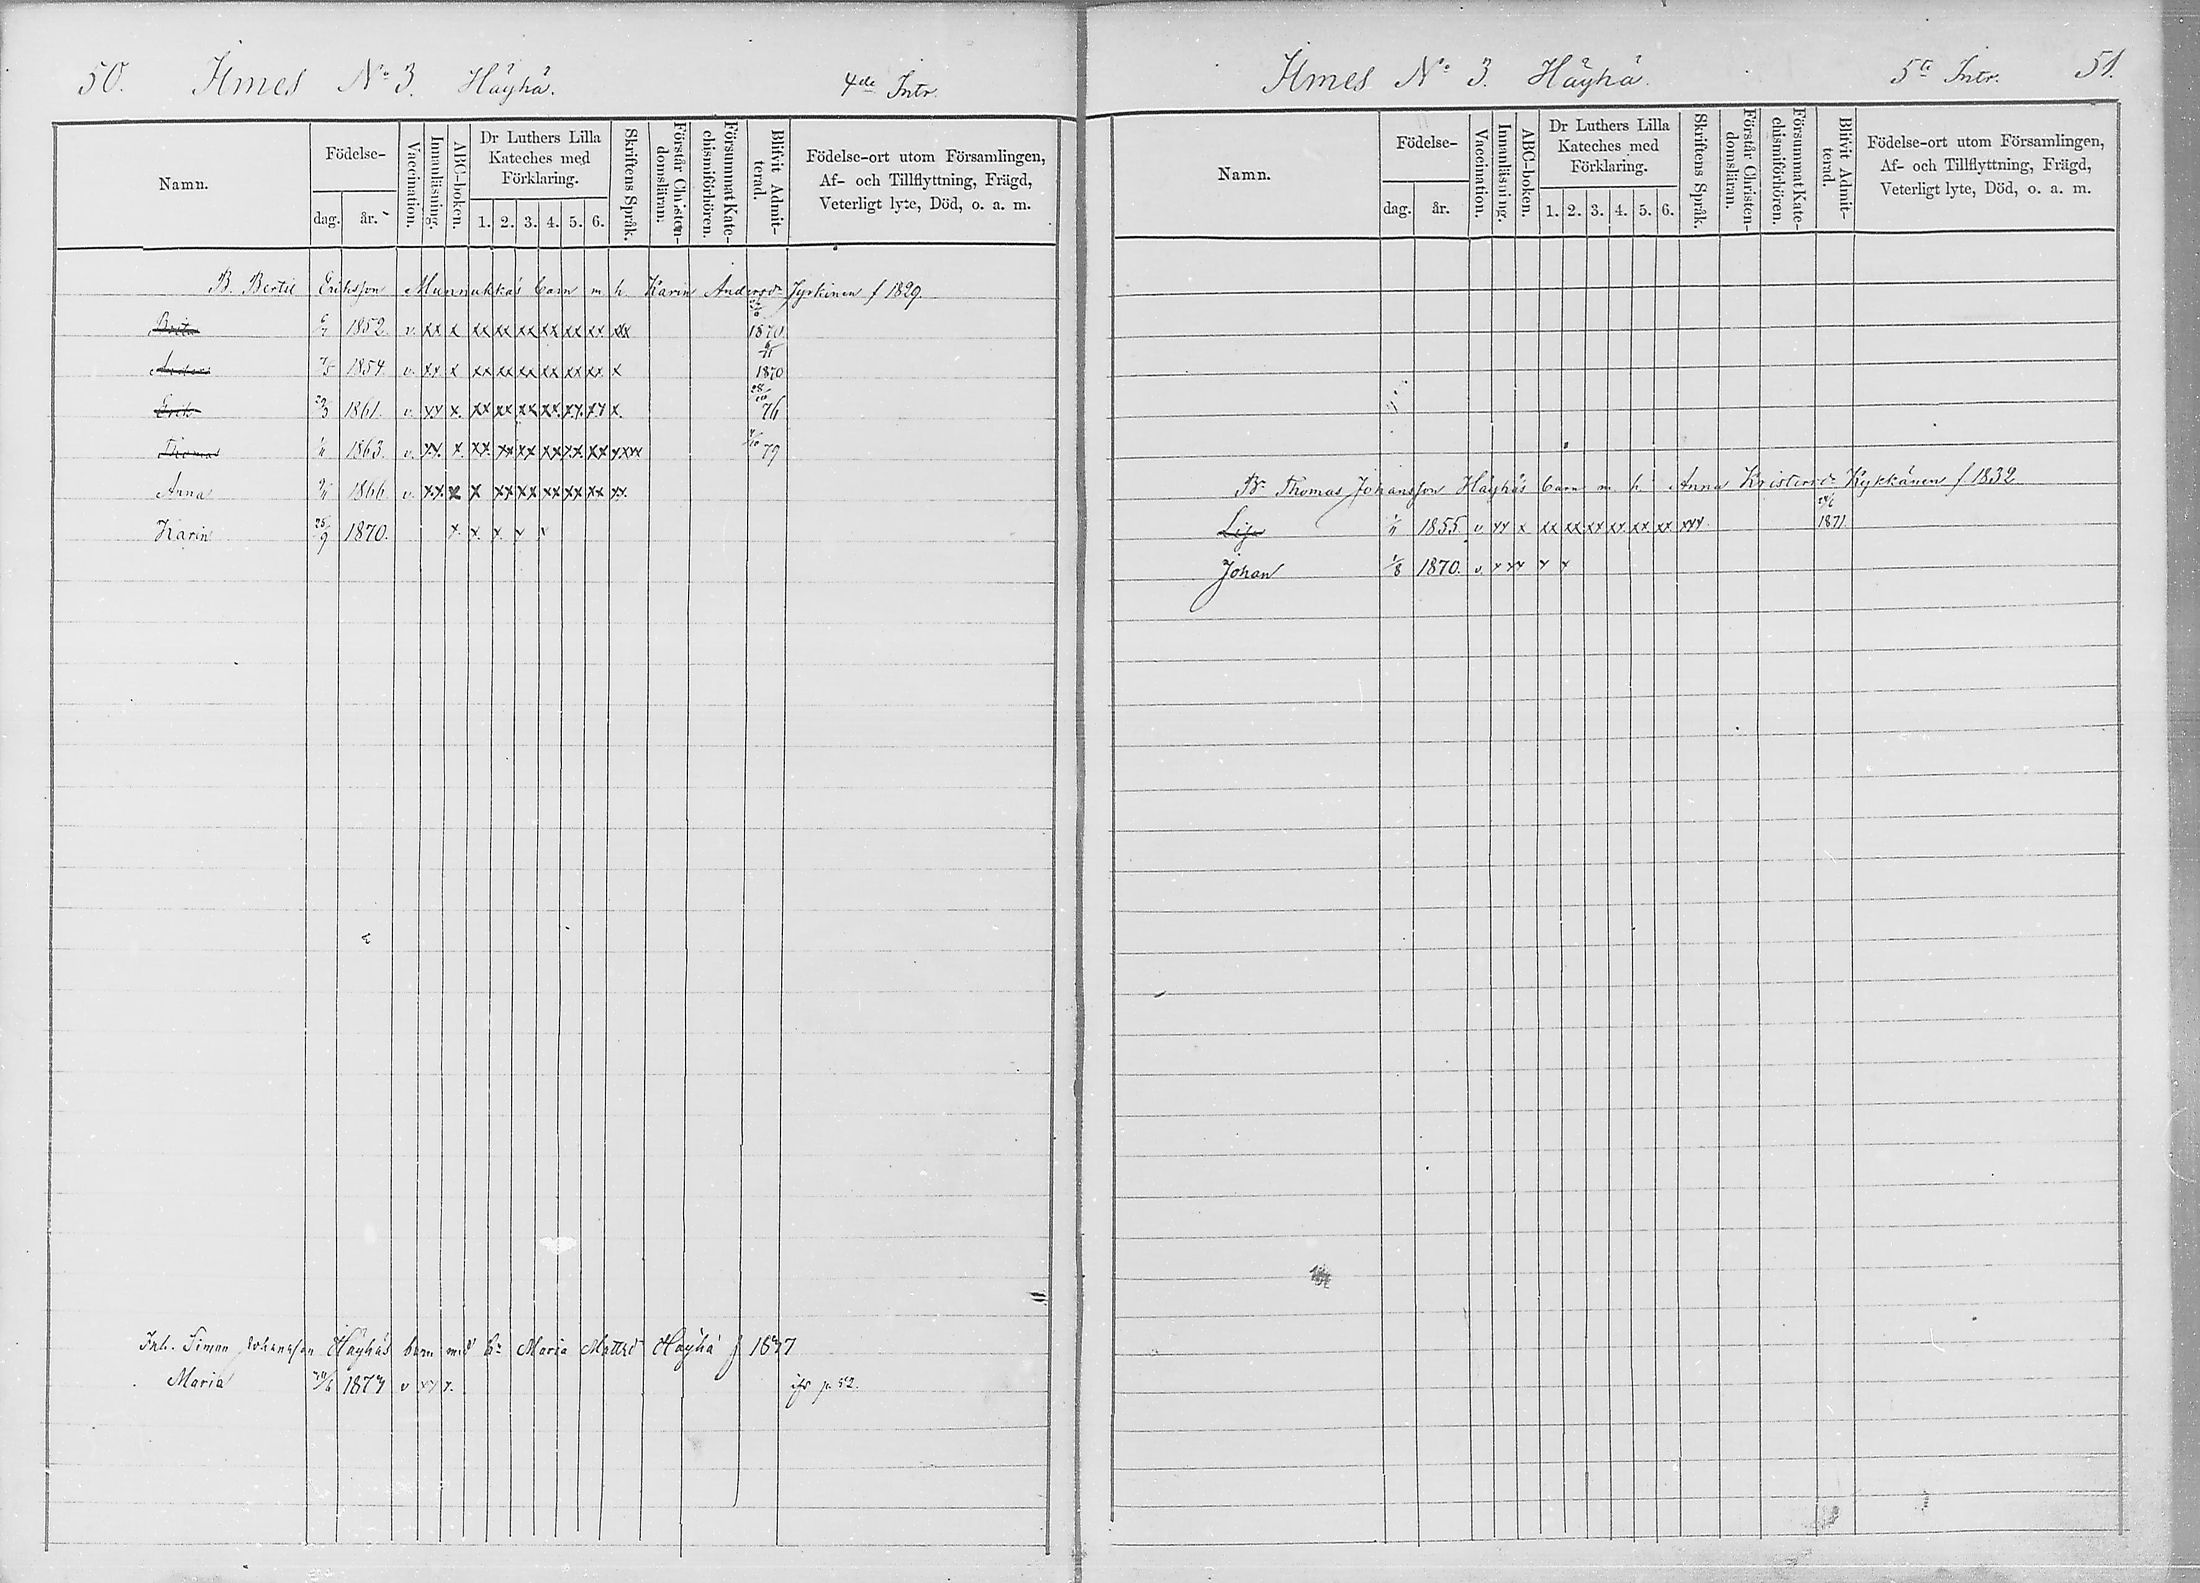 50. Ilmes No 3. Häyhä. 4de Intr.
Namn.
Födelse-
dag. år.
Vaccination.
Innanläsning.
ABC-boken.
Dr Luthers Lilla
Kateches med
Förklaring.
1. 2. 3. 4. 5. 6.
Skriftens Språk.
Förstår Christen-
domsläran.
Försummat Kate-
chismiförhören.
Blifvit Admit-
terad.
Födelse-ort utom Församlingen,
Af- och Tillflyttning, Frägd,
Veterligt lyte, Död, o. a. m.
B. Bertil Eriksson Munnukkas barn m h Karin Andersdr Jyrkinen f 1829.
Brita 1852. v. xx x xx xx xx xx xx xx xx 1870
Anders 1854 v. xx x xx xx xx xx xx xx x 1870
Erik 1861. v. xx x. xx xx xx xx xx xx x. 76
Thomas 1863. v. xx x. xx xx xx xx xx xx xxxx 79
Anna 1866 v. xx x x xx xx xx xx xx xx
Karin 25/9 1870. x x x x x
Inh. Simon Johansson Häyhäs barn med h. Maria Mattsd Häyhä f 1847
Maria 1874 v xx x. p. 52.
Ilmes No 3. Häyhä. 5te Intr. 51.
Namn.
Födelse-
dag. år.
Vaccination.
Innanläsning.
ABC-boken.
Dr Luthers Lilla
Kateches med
Förklaring.
1. 2. 3. 4. 5. 6.
Skriftens Språk.
Förstår Christen-
domsläran.
Försummat Kate-
chismiförhören.
Blifvit Admit-
terad.
Födelse-ort utom Församlingen,
Af- och Tillflyttning, Frägd,
Veterligt lyte, Död, o. a. m.
Br Thomas Johansson Häyhäs barn m. h. Anna Kristersdr Kykkänen f 1832
Lisa 1855 v xx x xx xx xx xx xx xx xxx 1871
Johan 1/8 1870. v. x xx x x